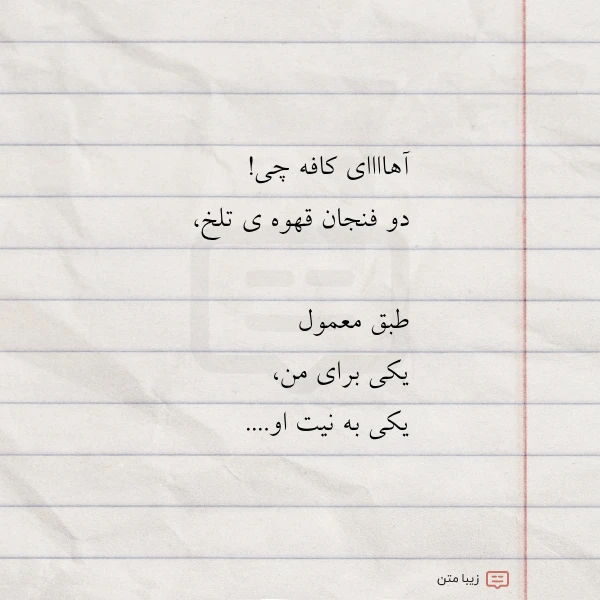 آهاااای کافه چی!
دو فنجان قهوه ی تلخ،
طبق معمول
یکی برای من،
یکی به نیت او....
زیبا متن